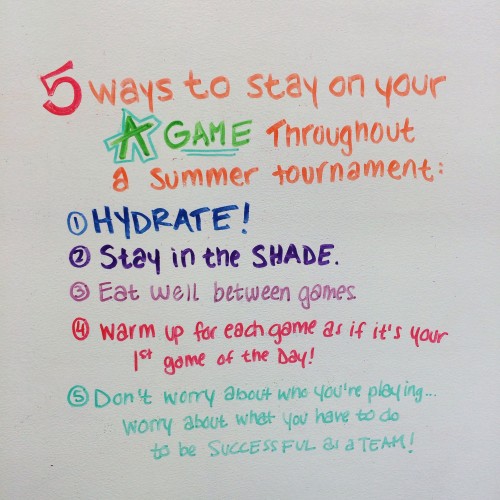 5 ways to stay on your
A GAME Throughout
a summer tournament:
① HYDRATE!
② Stay in the SHADE.
③ Eat well between games.
④ Warm up for each game as if it's your
1st game of the Day!
⑤ Don't worry about who you're playing...
worry about what you have to do
to be SUCCESSFUL as a TEAM!